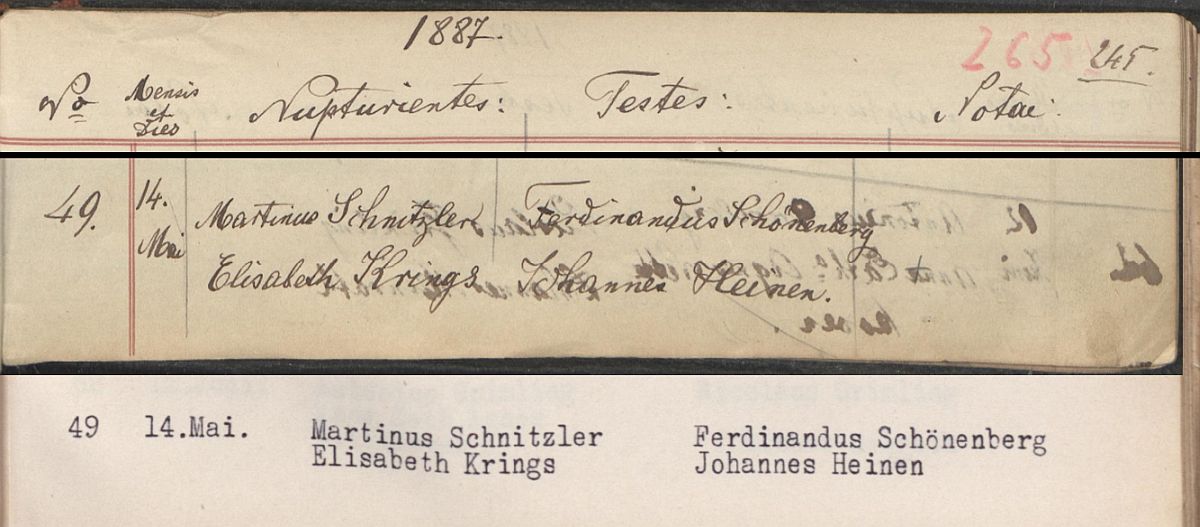 1887.
265 245.
No Mensis et Dies Nupturientes: Testes: Notae:
49. 14. Mai
Martinus Schnitzler Ferdinandus Schönenberg
Elisabeth Krings Johannes Heinen.
49 14.Mai. Martinus Schnitzler Ferdinandus Schönenberg
Elisabeth Krings Johannes Heinen